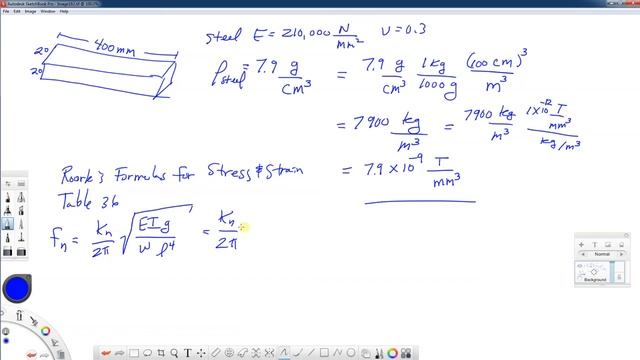 Autodesk SketchBook Pro - Image192.tif @ 100.0%
File Edit Image Window Help
400mm
20
20
steel E = 210,000 N/mm² υ = 0.3
ρ steel = 7.9 g/cm³ = 7.9 g/cm³ 1kg/1000g (100 cm)³/m³
= 7900 kg/m³ = 7900 kg/m³ 1x10⁻¹² T/mm³ / kg/m³
= 7.9 x 10⁻⁹ T/mm³
Roark's Formulas for Stress & Strain
Table 36
fn = Kn/2π √EIg/w l⁴ = Kn/2π
Normal
Background